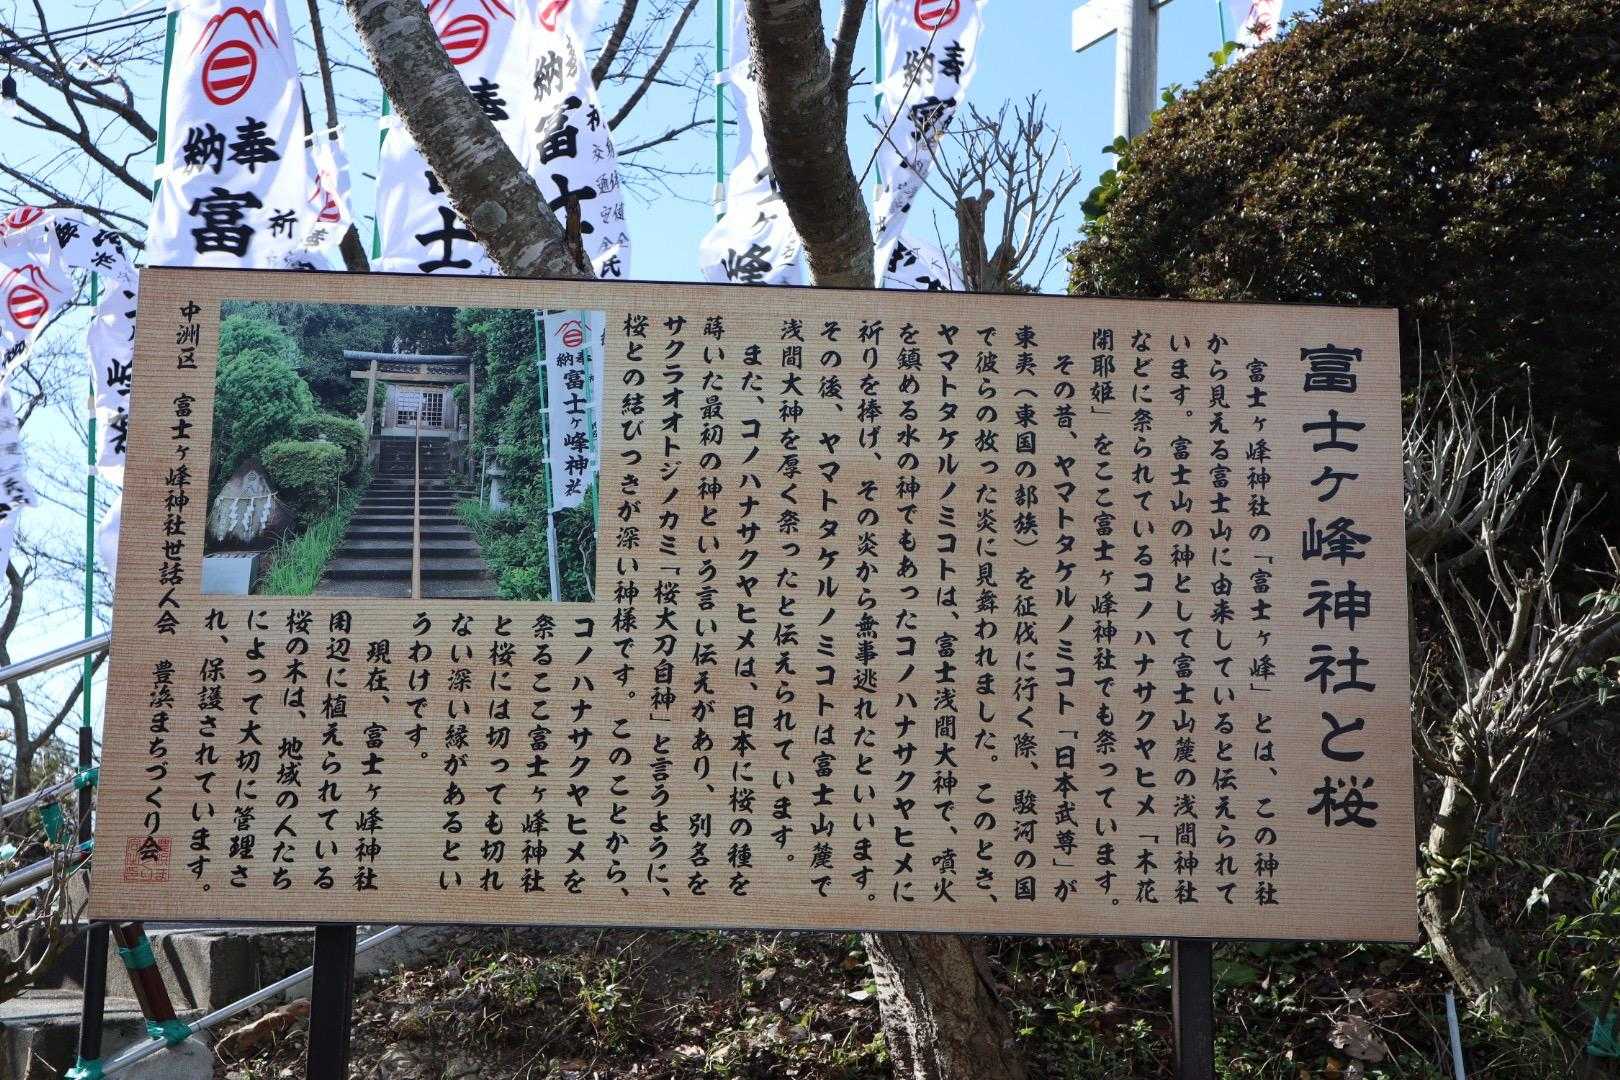 富士ヶ峰神社と桜
富士ヶ峰神社の「富士ヶ峰」とは、この神社
から見える富士山に由来していると伝えられて
います。富士山の神として富士山麓の浅間神社
などに祭られているコノハナサクヤヒメ「木花
開耶姫」をここ富士ヶ峰神社でも祭っています。
その昔、ヤマトタケルノミコト「日本武尊」が
東夷（東国の部族）を征伐に行く際、駿河の国
で彼らの放った炎に見舞われました。このとき、
ヤマトタケルノミコトは、富士浅間大神で、噴火
を鎮める水の神でもあったコノハナサクヤヒメに
祈りを捧げ、その炎から無事逃れたといいます。
その後、ヤマトタケルノミコトは富士山麓で
浅間大神を厚く祭ったと伝えられています。
また、コノハナサクヤヒメは、日本に桜の種を
蒔いた最初の神という言い伝えがあり、別名を
サクラオオトジノカミ「桜大刀自神」と言うように、
桜との結びつきが深い神様です。このことから、
コノハナサクヤヒメを
祭るここ富士ヶ峰神社
と桜には切っても切れ
ない深い縁があるとい
うわけです。
現在、富士ヶ峰神社
周辺に植えられている
桜の木は、地域の人たち
によって大切に管理さ
れ、保護されています。
中洲区 富士ヶ峰神社世話人会 豊浜まちづくり会
奉納 富士ヶ峰神社
奉納 富 祈
士
奉納 富士
交通安全
峰
奉納 富